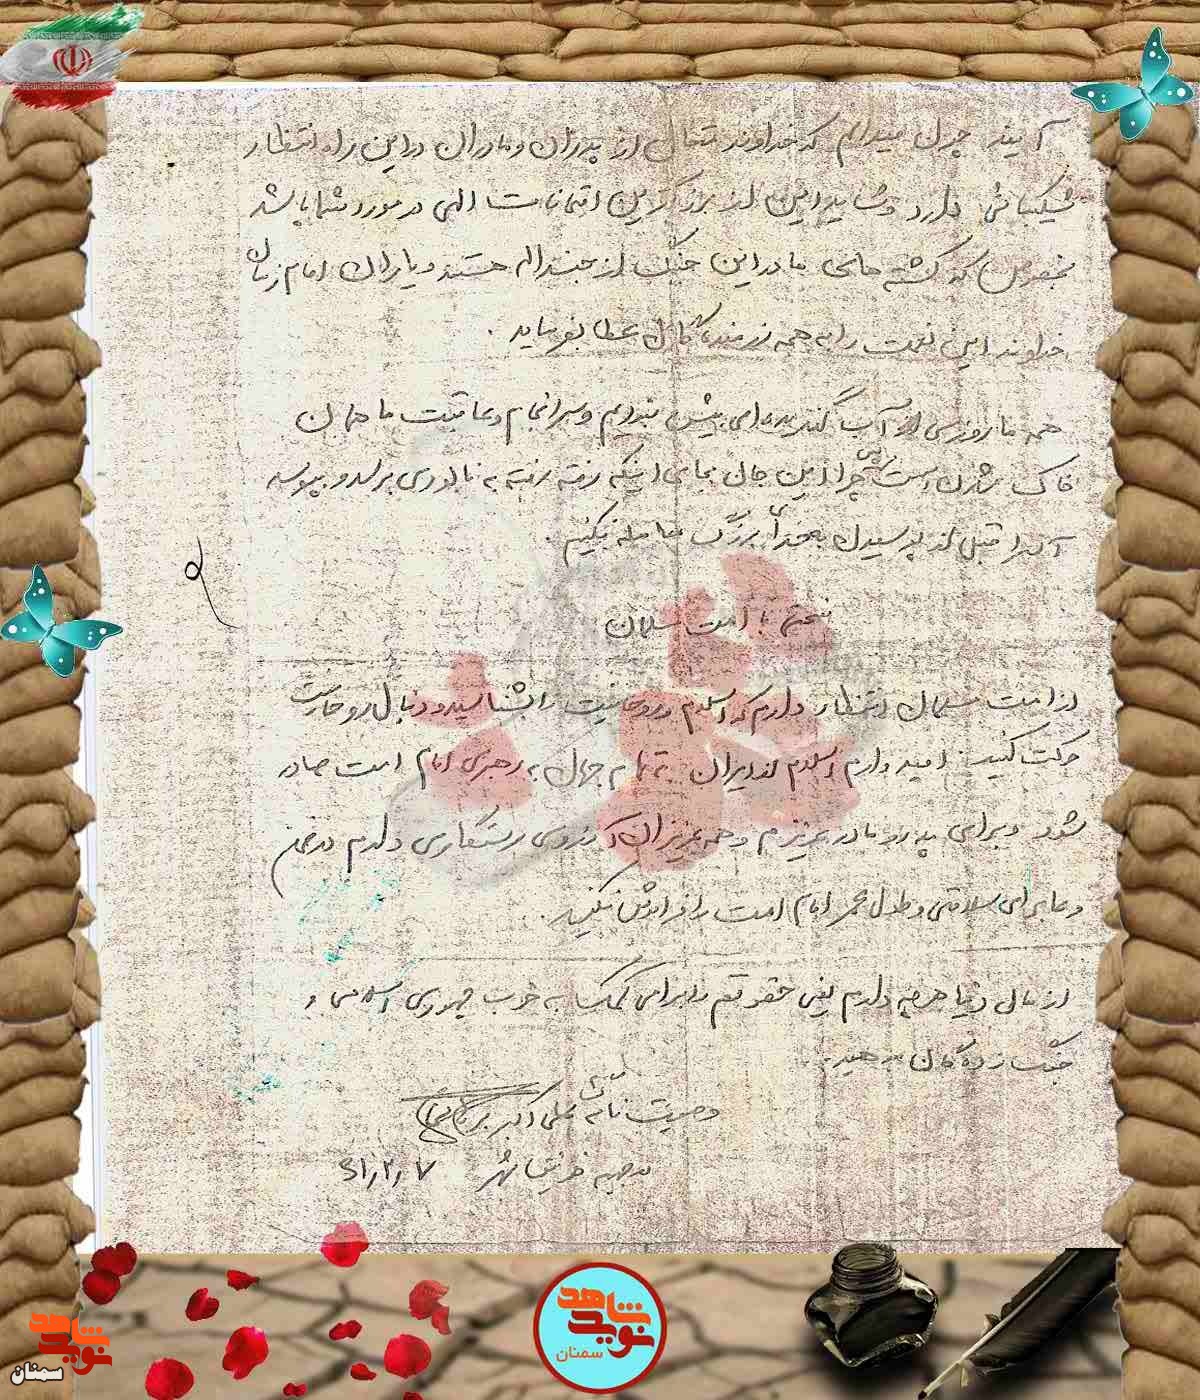 آیید چون میدانم که خداوند متعال از پدران و مادران در این راه انتظار
شکیبائی دارد و شاید این از بزرگترین امتحانات الهی در مورد شما باشد
بخصوص که کشته های ما در این جنگ از جنداله هستند و یاران امام زمان
خداوند این نعمت را به همه رزمندگان عطا بفرماید .
همه ما روزی از آب گندیده‌ای بیش نبودیم و سرانجام و عاقبت ما همان
خاک شدن است پس چرا این جان بجای اینکه رفته رفته به نابودی برسد و بپوسد
آنرا قبل از پوسیدن با خدای بزرگ معامله نکنیم .
سخنی با امت مسلمان
از امت مسلمان انتظار دارم که اسلام و روحانیت را بشناسید و دنبال روحانیت
حرکت کنید . امیدوارم اسلام از ایران به تمام جهان به رهبری امام امت صادر
شود و برای پدر و مادر عزیزم و همه عزیزان آرزوی رستگاری دارم در ضمن
دعا برای سلامتی و طول عمر امام امت را فراموش نکنید .
از مال دنیا هرچه دارم یعنی حقوقم را برای کمک به حزب جمهوری اسلامی و
جنگ زدگان بدهید .
وصیت نامه علی اکبر
خونین شهر ۶۱٫۲٫۷
نوید شاهد
سمنان
نوید شاهد
سمنان